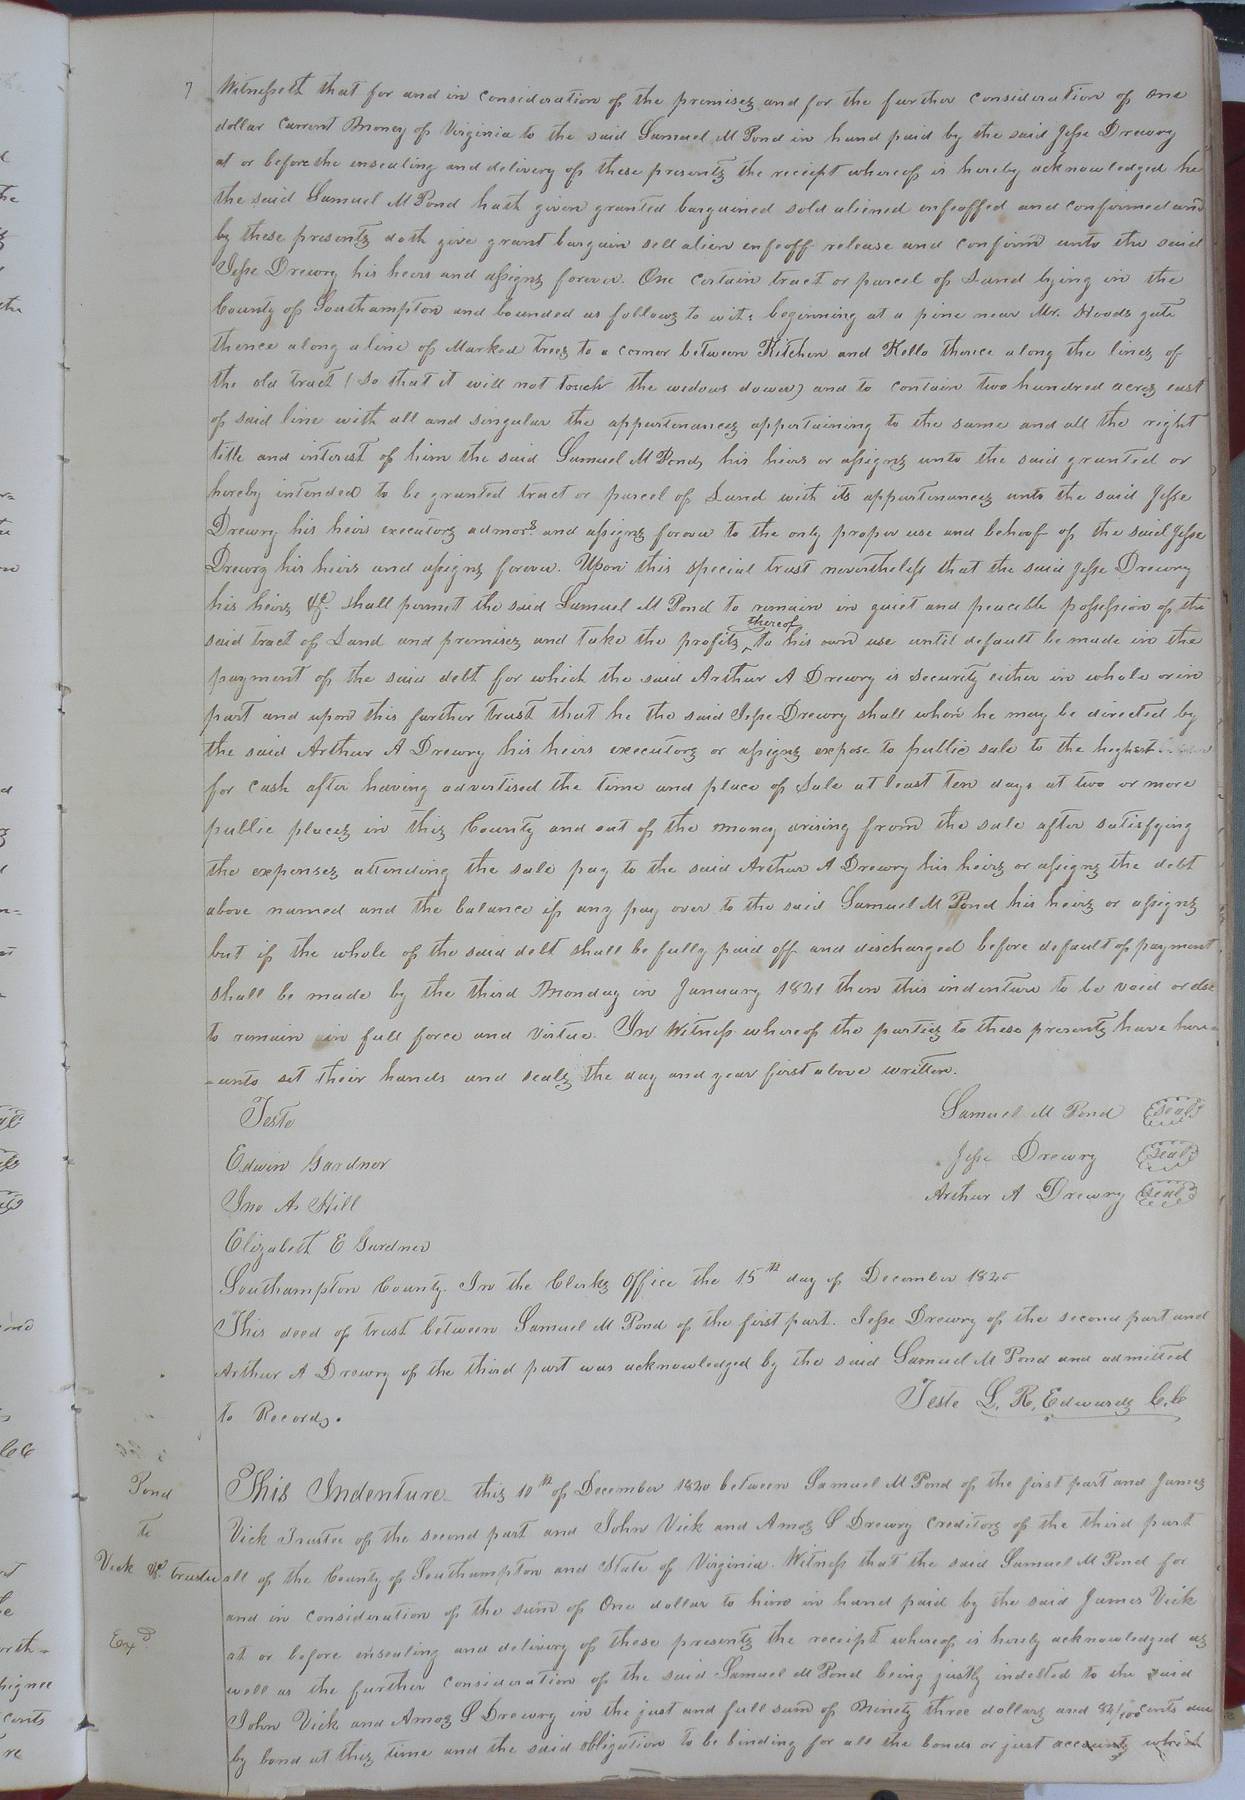 7
Witnesseth that for and in consideration of the premises and for the further consideration of one
dollar current money of Virginia to the said Samuel M Pond in hand paid by the said Jesse Drewry
at or before the insealing and delivery of these presents the receipt whereof is hereby acknowledged he
the said Samuel M Pond hath given granted bargained sold aliened enfeoffed and conformed and
by these presents doth give grant bargain sell alien enfeoff release and confirm unto the said
Jesse Drewry his heirs and assigns forever. One certain tract or parcel of Land lying in the
County of Southampton and bounded as follows to wit: beginning at a pine near Mr. Woods gate
thence along a line of Marked trees to a corner between Kitchen and Kello thence along the lines of
the old tract (so that it will not touch the widows dower) and to contain two hundred acres east
of said line with all and singular the appurtenances appertaining to the same and all the right
title and interest of him the said Samuel M Pond, his heirs or assigns unto the said granted or
hereby intended to be granted tract or parcel of Land with its appurtenances unto the said Jesse
Drewry his heirs executors admors. and assigns forever to the only proper use and behoof of the said Jesse
Drewry his heirs and assigns forever. Upon this special trust nevertheless that the said Jesse Drewry
his heirs &c. shall permit the said Samuel M Pond to remain in quiet and peacible possession of the
said tract of Land and premises and take the profits thereof to his own use until default be made in the
payment of the said debt for which the said Arthur A Drewry is security either in whole or in
part and upon this further trust that he the said Jesse Drewry shall when he may be directed by
the said Arthur A Drewry his heirs executors or assigns expose to public sale to the highest
for cash after having advertised the time and place of Sale at least ten days at two or more
public places in this County and out of the money arising from the sale after satisfying
the expenses attending the sale pay to the said Arthur A Drewry his heirs or assigns the debt
above named and the balance if any pay over to the said Samuel M Pond his heirs or assigns
but if the whole of the said debt shall be fully paid off and discharged before default of payment
shall be made by the third Monday in January 1821 then this indenture to be void or else
to remain in full force and virtue. In Witness whereof the parties to these presents have here=
=unto set their hands and seals the day and year first above written.
Teste Samuel M Pond (seal)
Edwin Gardner Jesse Drewry (seal)
Jno A. Hill Arthur A Drewry (seal)
Elizabeth E Gardner
Southampton County. In the Clerks Office the 15th day of December 1820
This deed of trust between Samuel M Pond of the first part. Jesse Drewry of the second part and
Arthur A Drewry of the third part was acknowledged by the said Samuel M Pond and admitted
to Record.
Teste L. R. Edwards C.C
Pond
to
Vick &c. trustee
Exd.
This Indenture this 10th of December 1820 between Samuel M Pond of the first part and James
Vick Trustee of the second part and John Vick and Amos G Drewry creditors of the third part
all of the County of Southampton and State of Virginia. Witness that the said Samuel M Pond for
and in consideration of the sum of One dollar to him in hand paid by the said James Vick
at or before insealing and delivery of these presents the receipt whereof is hereby acknowledged as
well as the further consideration of the said Samuel M Pond being justly indebted to the said
John Vick and Amos G Drewry in the just and full sum of Ninety three dollars and cents due
by bond at this time and the said obligation to be binding for all the bonds or just accounts which